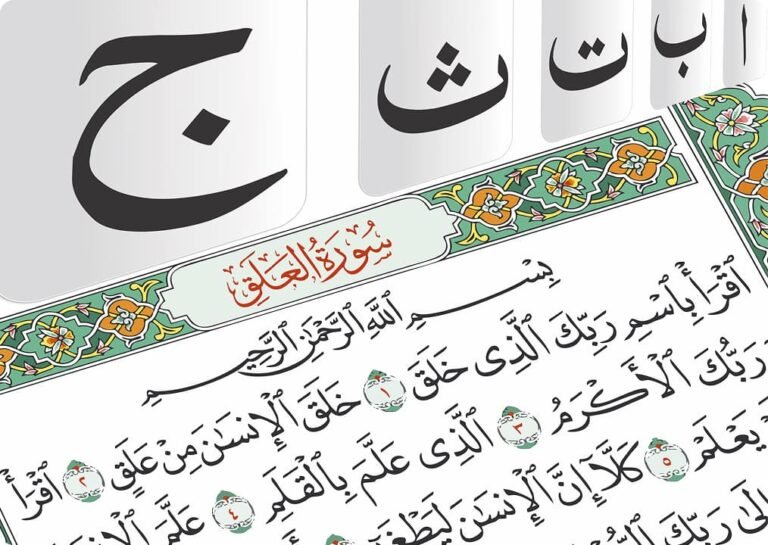 ا ب ت ث ج
سُورَةُ الْعَلَقِ
بِسْمِ اللَّهِ الرَّحْمَٰنِ الرَّحِيمِ
اقْرَأْ بِاسْمِ رَبِّكَ الَّذِي خَلَقَ ١ خَلَقَ الْإِنسَٰنَ مِنْ عَلَقٍ ٢ اقْرَأْ
وَرَبُّكَ الْأَكْرَمُ ٣ الَّذِي عَلَّمَ بِالْقَلَمِ ٤ عَلَّمَ الْإِنسَٰنَ
يَعْلَمْ ٥ كَلَّا إِنَّ الْإِنسَٰنَ لَيَطْغَىٰ
إِلَىٰ رَبِّكَ